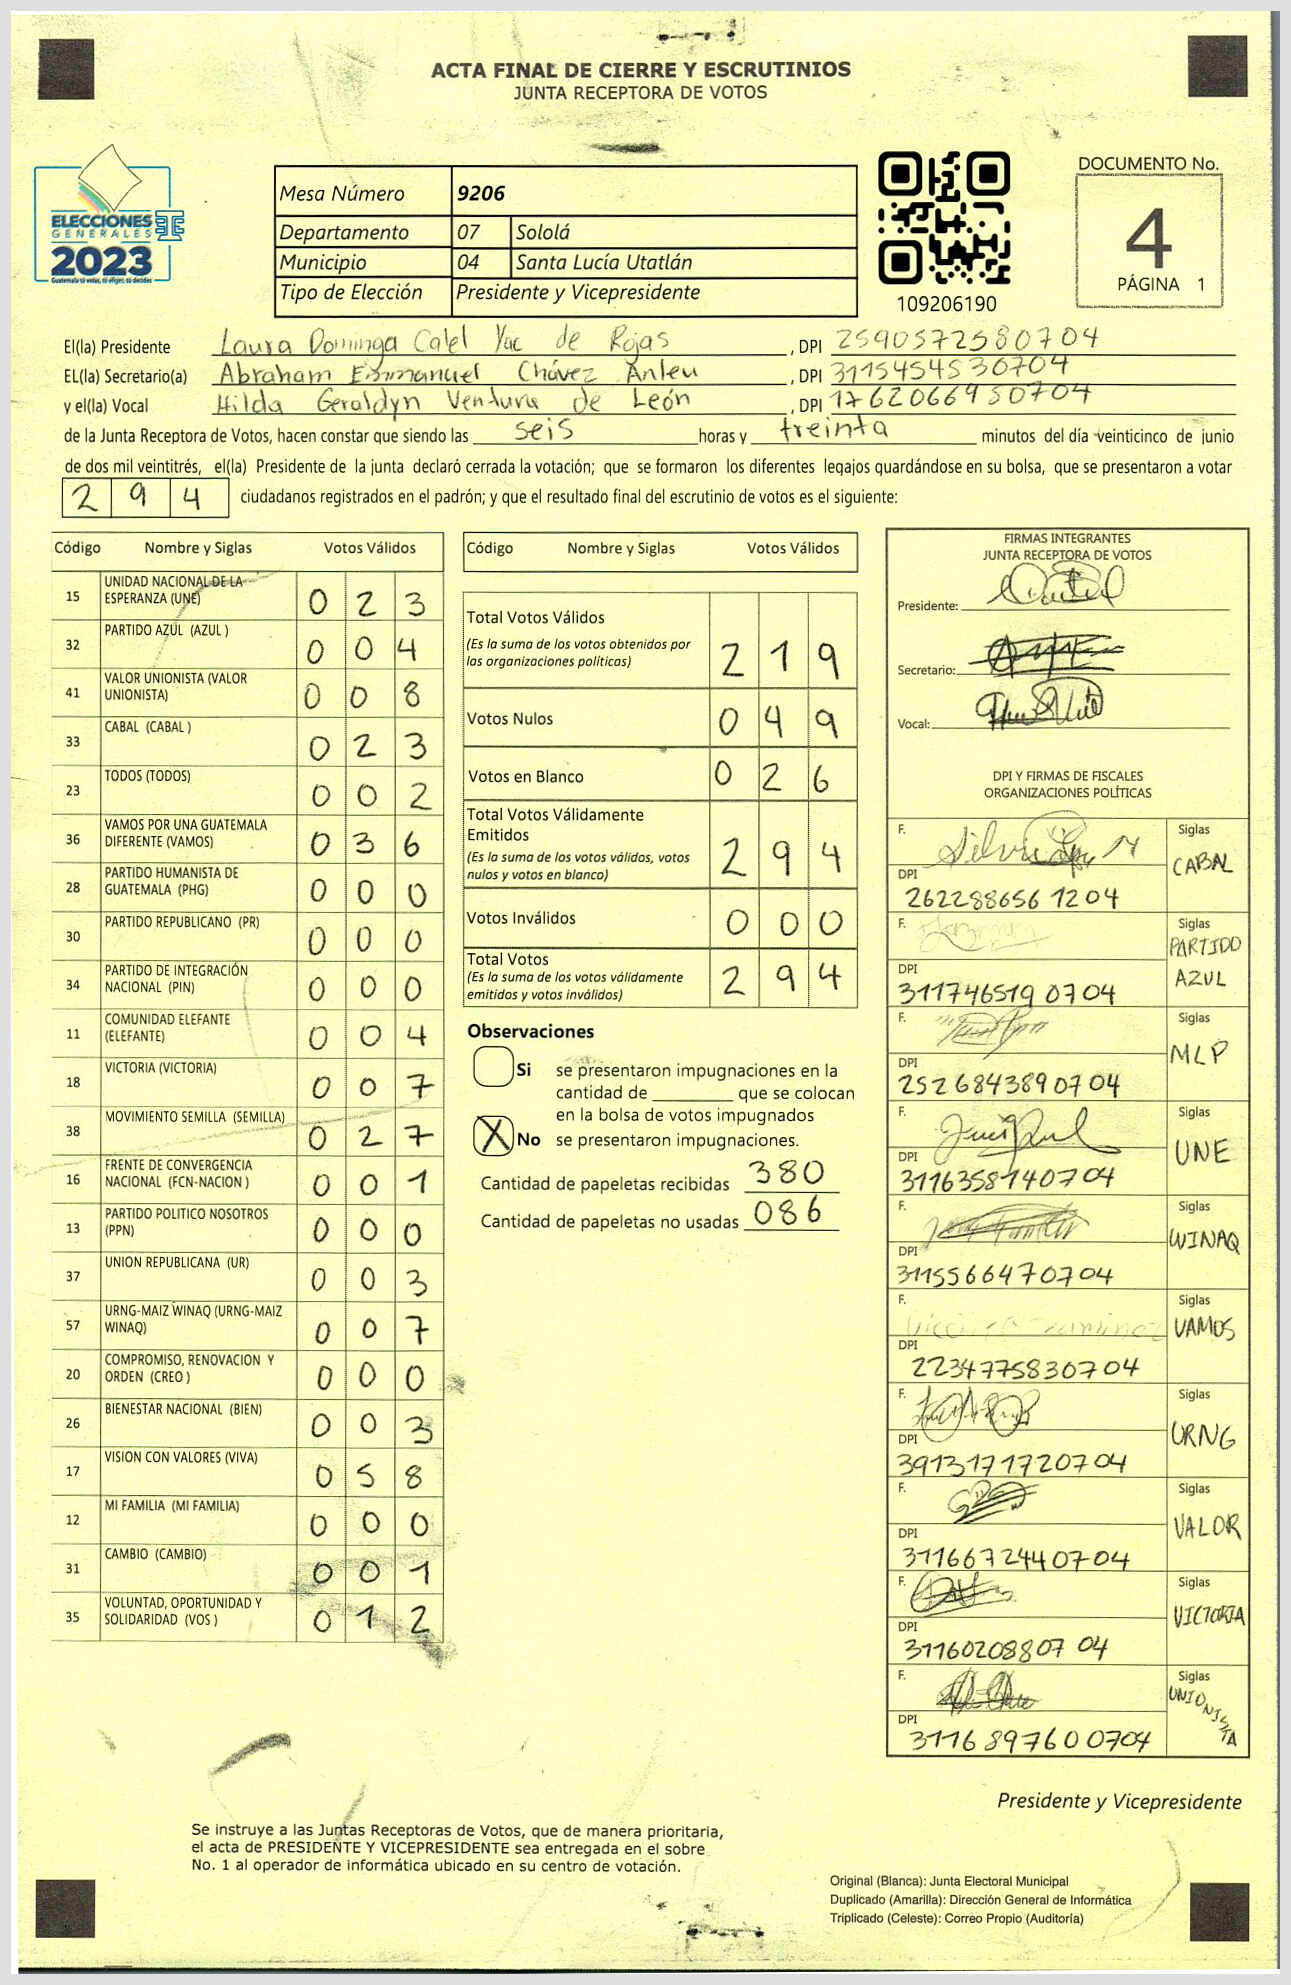 ACTA FINAL DE CIERRE Y ESCRUTINIOS
JUNTA RECEPTORA DE VOTOS
ELECCIONES
GENERALES
2023
Guatemala tú votas, tú eliges, tú decides
Mesa Número 9206
Departamento 07 Sololá
Municipio 04 Santa Lucía Utatlán
Tipo de Elección Presidente y Vicepresidente
109206190
DOCUMENTO No.
4
PÁGINA 1
El(la) Presidente Laura Dominga Calel Yac de Rojas, DPI 2590572580704
EL(la) Secretario(a) Abraham Emmanuel Chávez Anleu, DPI 3115454530704
y el(la) Vocal Hilda Geraldyn Ventura de León, DPI 1762066950704
de la Junta Receptora de Votos, hacen constar que siendo las seis horas y treinta minutos del día veinticinco de junio
de dos mil veintitrés, el(la) Presidente de la junta declaró cerrada la votación; que se formaron los diferentes legajos quardándose en su bolsa, que se presentaron a votar
294 ciudadanos registrados en el padrón; y que el resultado final del escrutinio de votos es el siguiente:
Código Nombre y Siglas Votos Válidos
15 UNIDAD NACIONAL DE LA ESPERANZA (UNE) 0 2 3
32 PARTIDO AZUL (AZUL ) 0 0 4
41 VALOR UNIONISTA (VALOR UNIONISTA) 0 0 8
33 CABAL (CABAL ) 0 2 3
23 TODOS (TODOS) 0 0 2
36 VAMOS POR UNA GUATEMALA DIFERENTE (VAMOS) 0 3 6
28 PARTIDO HUMANISTA DE GUATEMALA (PHG) 0 0 0
30 PARTIDO REPUBLICANO (PR) 0 0 0
34 PARTIDO DE INTEGRACIÓN NACIONAL (PIN) 0 0 0
11 COMUNIDAD ELEFANTE (ELEFANTE) 0 0 4
18 VICTORIA (VICTORIA) 0 0 7
38 MOVIMIENTO SEMILLA (SEMILLA) 0 2 7
16 FRENTE DE CONVERGENCIA NACIONAL (FCN-NACION ) 0 0 1
13 PARTIDO POLITICO NOSOTROS (PPN) 0 0 0
37 UNION REPUBLICANA (UR) 0 0 3
57 URNG-MAIZ WINAQ (URNG-MAIZ WINAQ) 0 0 7
20 COMPROMISO, RENOVACION Y ORDEN (CREO ) 0 0 0
26 BIENESTAR NACIONAL (BIEN) 0 0 3
17 VISION CON VALORES (VIVA) 0 5 8
12 MI FAMILIA (MI FAMILIA) 0 0 0
31 CAMBIO (CAMBIO) 0 0 1
35 VOLUNTAD, OPORTUNIDAD Y SOLIDARIDAD (VOS ) 0 1 2
Código Nombre y Siglas Votos Válidos
Total Votos Válidos
(Es la suma de los votos obtenidos por
las organizaciones políticas) 2 1 9
Votos Nulos 0 4 9
Votos en Blanco 0 2 6
Total Votos Válidamente
Emitidos
(Es la suma de los votos válidos, votos
nulos y votos en blanco) 2 9 4
Votos Inválidos 0 0 0
Total Votos
(Es la suma de los votos válidamente
emitidos y votos inválidos) 2 9 4
Observaciones
Si se presentaron impugnaciones en la
cantidad de ________ que se colocan
en la bolsa de votos impugnados
X No se presentaron impugnaciones.
Cantidad de papeletas recibidas 380
Cantidad de papeletas no usadas 086
FIRMAS INTEGRANTES
JUNTA RECEPTORA DE VOTOS
Presidente:
Secretario:
Vocal:
DPI Y FIRMAS DE FISCALES
ORGANIZACIONES POLÍTICAS
F. Siglas
CABAL
DPI
262288656 1204
F. Siglas
PARTIDO
AZUL
DPI
311746519 0704
F. Siglas
MLP
DPI
2526843890704
F. Siglas
UNE
DPI
3116358140704
F. Siglas
WINAQ
DPI
3115566470704
F. Siglas
VAMOS
DPI
2234775830704
F. Siglas
URNG
DPI
3913171720704
F. Siglas
VALOR
DPI
3116672440704
F. Siglas
VICTORIA
DPI
3116020880704
F. Siglas
UNIONISTA
DPI
3116897600704
Presidente y Vicepresidente
Se instruye a las Juntas Receptoras de Votos, que de manera prioritaria,
el acta de PRESIDENTE Y VICEPRESIDENTE sea entregada en el sobre
No. 1 al operador de informática ubicado en su centro de votación.
Original (Blanca): Junta Electoral Municipal
Duplicado (Amarilla): Dirección General de Informática
Triplicado (Celeste): Correo Propio (Auditoría)